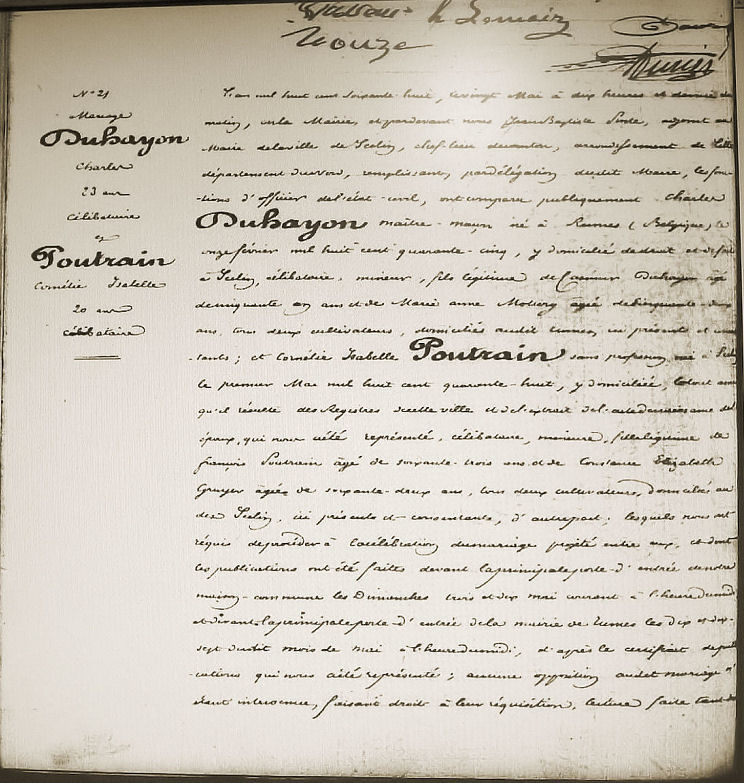 Nouze
N° 21
Mariage
Duhayon
Charles
23 ans
célibataire
et
Poutrain
Cornélie Isabelle
20 ans
célibataire
L'an mil huit cent soixante-huit, le vingt Mai à dix heures et demie du
matin, en la Mairie, et pardevant nous Jean Baptiste adjoint au
Maire de la ville de Seclin, chef-lieu de canton, arrondissement de Lille
département du nord, remplissant, par délégation dudit Maire, les fonc-
tions d'officier de l'état-civil, ont comparu publiquement Charles
Duhayon maître-maçon né à (Belgique) le
onze février mil huit cent quarante-cinq, y domicilié de droit et de fait
à Seclin, célibataire, mineur, fils légitime de Duhayon âgé
de cinquante ans et de Marie anne âgée de cinquante-deux
ans, tous deux cultivateurs, domiciliés audit ici présents et consen-
-tants; et Cornélie Isabelle Poutrain sans profession, née à Seclin
le premier Mai mil huit cent quarante-huit, y domiciliée, le tout ainsi
qu'il résulte des Registres de cette ville et de l'extrait de l'acte de naissance del
époux, qui nous a été représenté, célibataire, mineure, fille légitime de
françois Poutrain âgé de soixante-trois ans et de Constance Elizabeth
Gruyer âgée de soixante-deux ans, tous deux cultivateurs, domiciliés au
dit Seclin, ici présents et consentants, d'autre part; lesquels nous ont
réquis de procéder à la célébration du mariage projeté entre eux, et dont
les publications ont été faites devant la principale porte d'entrée de notre
maison-commune les Dimanches trois et dix mai courant à l'heure de midi
et devant la principale porte d'entrée de la mairie de les dix et dix-
sept dudit mois de mai à l'heure de midi, d'après le certificat de publi-
-cations qui nous a été représenté; aucune opposition audit mariage n'
étant intervenue, faisant droit à leur réquisition, lecture faite tant